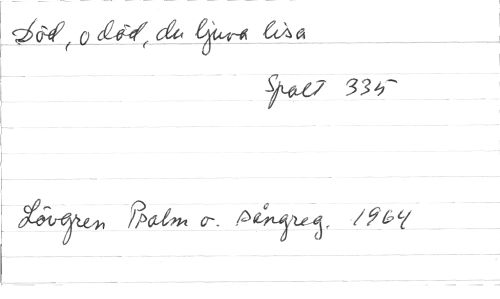 Död, o död, du ljuva lisa
Spalt 335
Lövgren Psalm o. sångreg. 1964